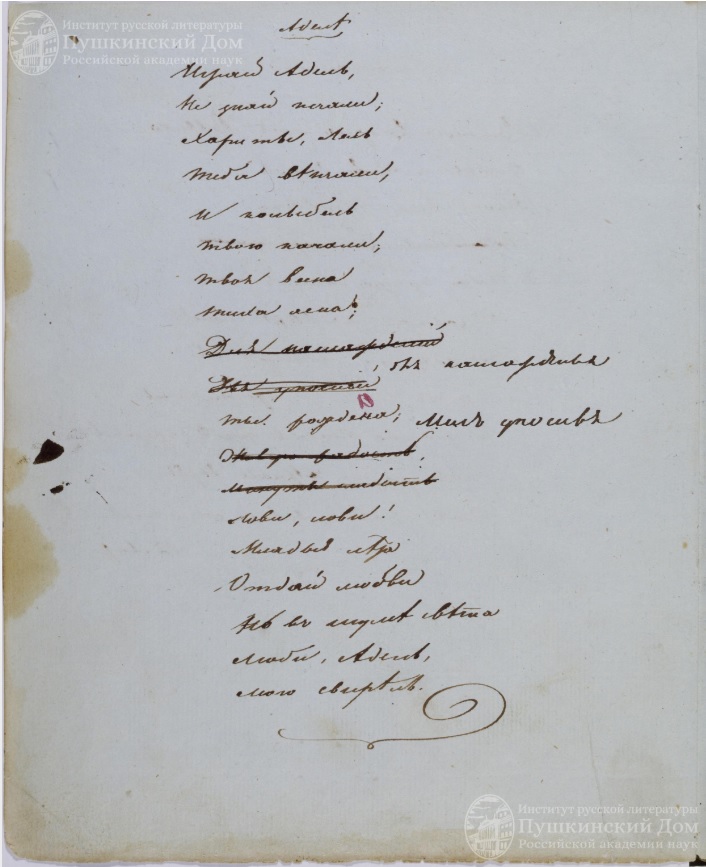 Институт русской литературы
Пушкинский Дом
Российской академии наук
Аделѣ
Играй Адель,
Не знай печали;
Хариты, Лель
Тебя вѣнчали,
И колыбель
твою качали;
твоя весна
тиха ясна;
Для наслаждений
ты рождена;
Лови, лови!
Младыя лѣта
Отдай любви
И въ шумѣ свѣта
Люби, Адель,
мою свирѣль.
Институт русской литературы
Пушкинский Дом
Российской академии наук